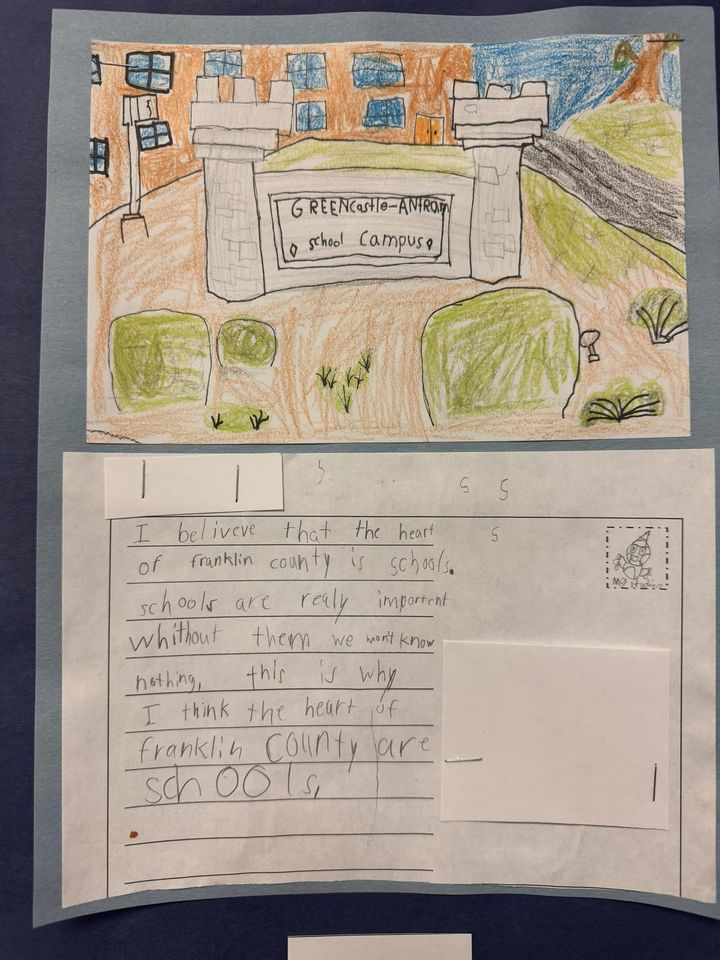 GREENcastle-ANTRAM
school Campus
I beliveve that the heart
of franklin county is schools.
schools are realy importent
whithout them we won't know
nothing, this is why
I think the heart of
franklin county are
schools,